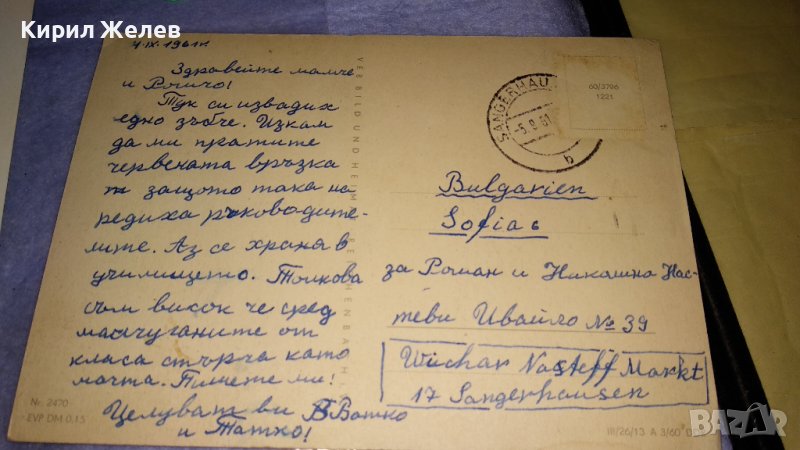 Кирил Желев
4.IX.1961г.
Здравейте мамче
и Ромчо!
Тук си извадих
едно зъбче. Искам
да ми пратите
червената връзка
защото така на
редиха ръководите-
лите. Аз се храня в
училището. Толкова
съм висок че сред
малчуганите от
класа стърча като
мачта. Пишете ми!
Целуват ви Батко
и Татко!
Nr. 2470
EVP DM 0,15
VEB BILD UND HEIMAT REICHENBACH I. V.
SANGERHAU
-5.9.61
b
60/3796
1221
Bulgarien
Sofia 6
за Роман и Николина Нас-
теви Ивайло № 39
Wichar Nasteff Markt
17 Sangerhausen
III/26/13 A 3/60
BAZAR